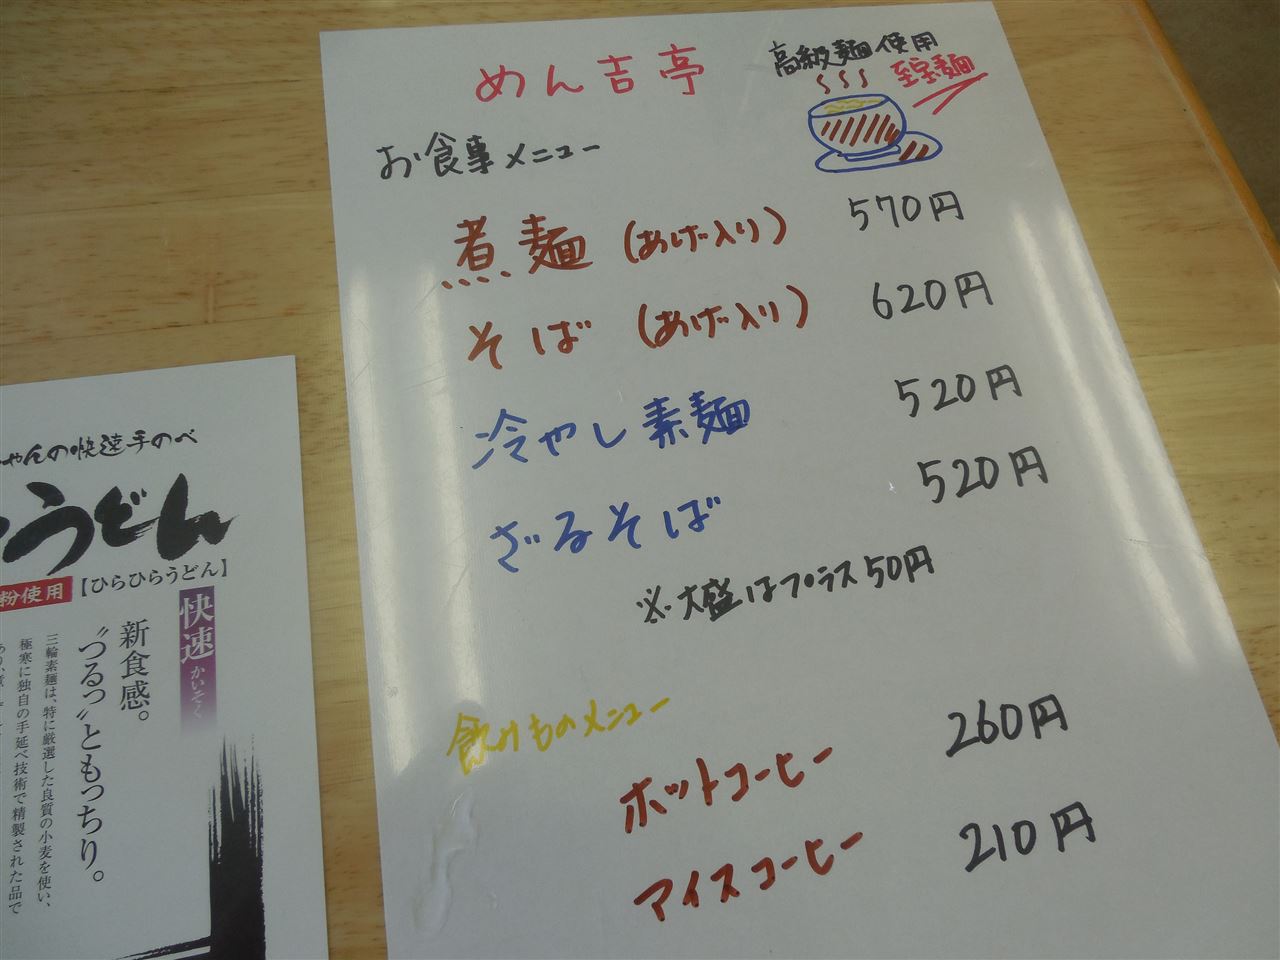 めん吉亭
高級麺使用
至宝麺
お食事メニュー
煮麺 (あげ入り) 570円
そば (あげ入り) 620円
冷やし素麺 520円
ざるそば 520円
※大盛はプラス50円
飲みものメニュー
ホットコーヒー 260円
アイスコーヒー 210円
ちゃんの快速手のべ
うどん
粉使用
【ひらひらうどん】
快速
かいそく
新食感。
〝つるっ〟ともっちり。
三輪素麺は、特に厳選した良質の小麦を使い、
極寒に独自の手延べ技術で精製された品で